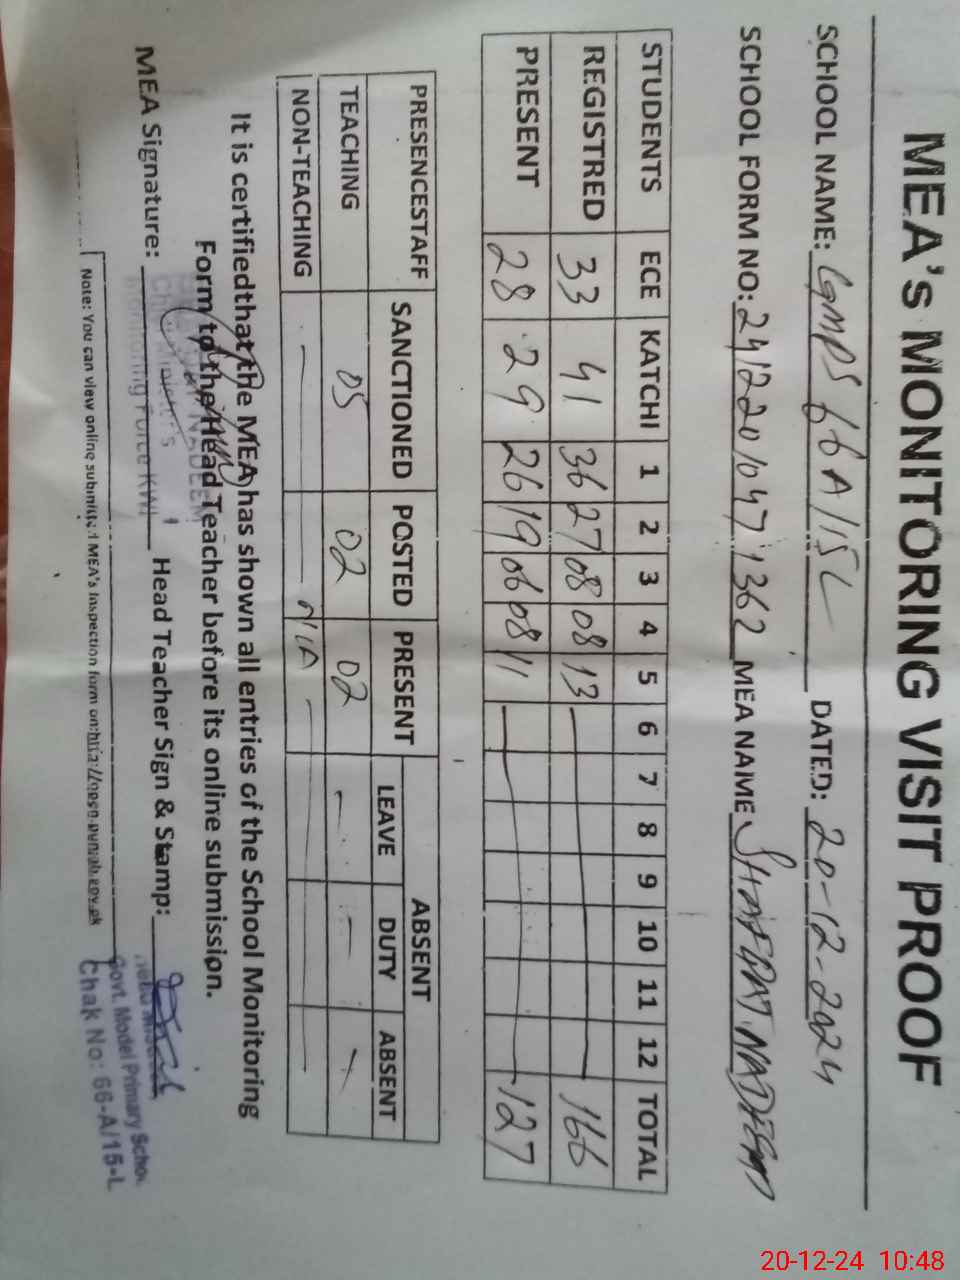 MEA's MONITORING VISIT PROOF
SCHOOL NAME: GMPS 66A/15L DATED: 20-12-2024
SCHOOL FORM NO: 24122010471362 MEA NAME SHAFQAT NADEEM
STUDENTS ECE KATCHI 1 2 3 4 5 6 7 8 9 10 11 12 TOTAL
REGISTRED 33 41 36 27 08 08 13 166
PRESENT 28 29 26 19 06 08 11 127
PRESENCESTAFF SANCTIONED POSTED PRESENT ABSENT
LEAVE DUTY ABSENT
TEACHING 05 02 02 - - -
NON-TEACHING N/A
It is certifiedthat the MEA has shown all entries of the School Monitoring
Form to the Head Teacher before its online submission.
NADEEM
Chief Minister's
Monitoring Force KWL
MEA Signature: Head Teacher Sign & Stamp:
Govt. Model Primary School
Chak No: 66-A/15-L
Note: You can view online submitted MEA's Inspection form on: http://open.punjab.gov.pk
20-12-24 10:48